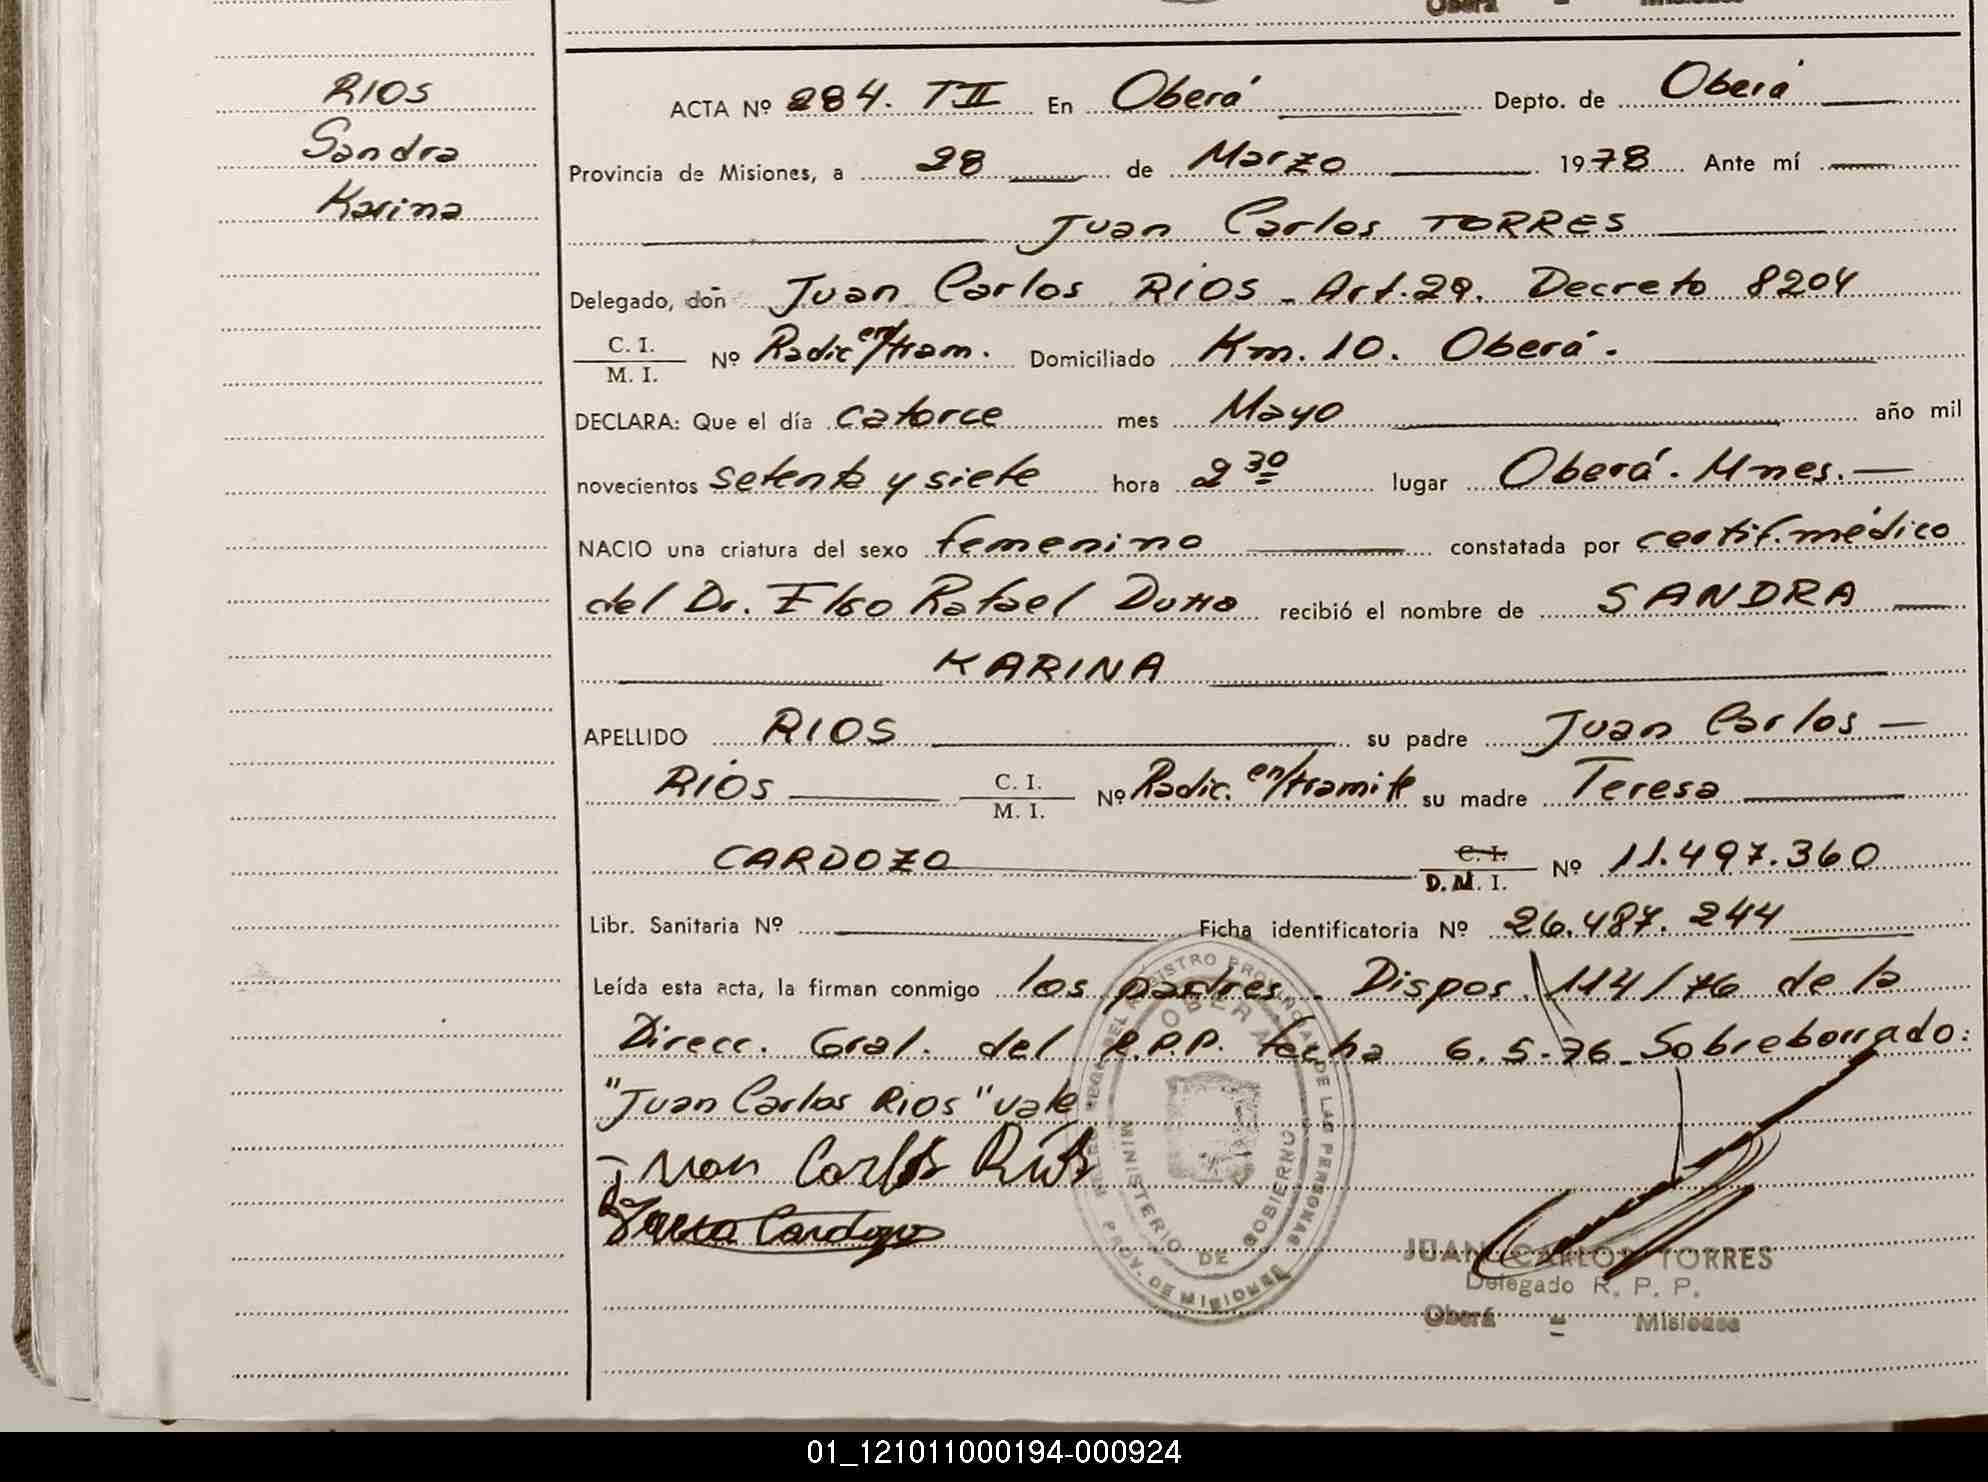 Oberá - Misiones
RIOS
Sandra
Karina
ACTA Nº 284. TII En Oberá Depto. de Oberá
Provincia de Misiones, a 28 de Marzo 1978 Ante mí
Juan Carlos TORRES
Delegado, don Juan Carlos RIOS - Art. 29. Decreto 8204
C. I. / M. I. Nº Radic en/tram. Domiciliado Km. 10. Oberá.
DECLARA: Que el día catorce mes Mayo año mil
novecientos setenta y siete hora 2 30 lugar Oberá. Mnes.
NACIO una criatura del sexo femenino constatada por certif. médico
del Dr. Elso Rafael recibió el nombre de SANDRA
KARINA
APELLIDO RIOS su padre Juan Carlos
RIOS C. I. / M. I. Nº Radic. en/tramite su madre Teresa
CARDOZO C. I. / D. M. I. Nº 11.497.360
Libr. Sanitaria Nº Ficha identificatoria Nº 26.487.244
Leída esta acta, la firman conmigo los padres. Dispos. 114/76 de la
Direcc. Gral. del R.P.P. fecha 6.5-76 - Sobreborrado:
"Juan Carlos Rios" vale
Juan Carlos Ríos
Teresa Cardozo
REGISTRO PROVINCIAL DE LAS PERSONAS
OBERA
MINISTERIO DE GOBIERNO
PROV. DE MISIONES
JUAN CARLOS TORRES
Delegado R. P. P.
Oberá - Misiones
01_121011000194-000924